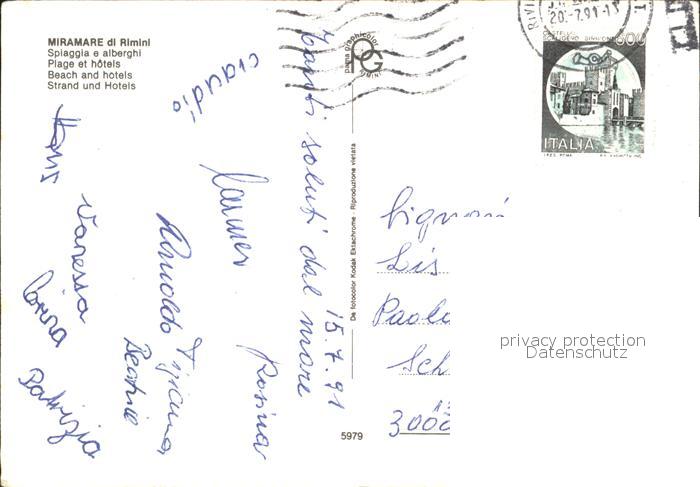 MIRAMARE di Rimini
Spiaggia e alberghi
Plage et hôtels
Beach and hotels
Strand und Hotels
Tanti saluti dal mare
15.7.91
Claudio
Carmen
Rosina
Arnoldo
Tiziana
Beatrice
Vanessia
Patrizia
De fotocolor Kodak Ektachrome - Riproduzione vietata
RIMINI
5979
20.-7.91-1
600
ITALIA
Signori
Lis
Paolo
Sch
3000
privacy protection
Datenschutz